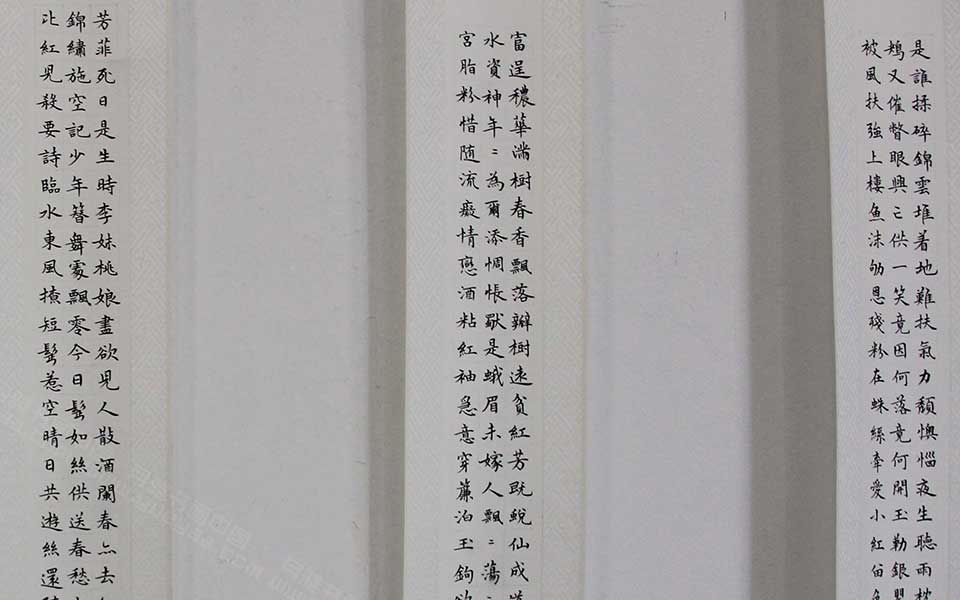 是誰揉碎錦雲堆着地難扶氣力頹懊惱夜生聽雨枕
鴆又催瞥眼興亡供一笑竟因何落竟何開玉勒銀罌
被風扶強上樓魚沫劬恩殘粉在蛛絲牽愛小紅留
富逞穠華滿樹春香飄落瓣樹遠貧紅芳既蛻仙成道
水資神年〻為爾添惆悵獸是蛾眉未嫁人飄〻蕩
宮脂粉惜随流癡情戀酒粘紅袖急意穿簾泊玉鉤欲
芳菲死日是生時李妹桃娘盡欲兒人散酒闌春亦去
錦繡施空記少年簪舞處飄零今日鬢如絲供送春愁
比紅兒殺要詩臨水東風撩短鬢惹空晴日共遊絲還